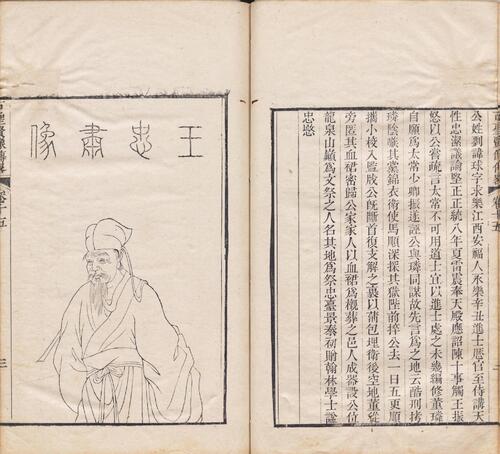 公姓劉諱球字求樂江西安福人永樂辛丑進士歷官至侍講天
性忠潔議論堅正正統八年夏雷震奉天殿應詔陳十事觸王振
怒以公嘗疏言太常不可用道士宜以進士處之未幾編修董璘
自願為太常少卿振遂誣公與璘同謀故先言為之地云酷刑拷
璘陰嗾其黨錦衣衛使馬順深探其獄陛前捽公去一日五更順
攜小校入監戕公旣斷首復支解之裹以蒲包埋衛後空地董從
旁匿其血裙密歸公家家人以血裙為櫬葬之邑人成器設公位
龍泉山巔為文祭之人名其地為祭忠臺景泰初贈翰林學士諡
忠愍
王忠肅像
三